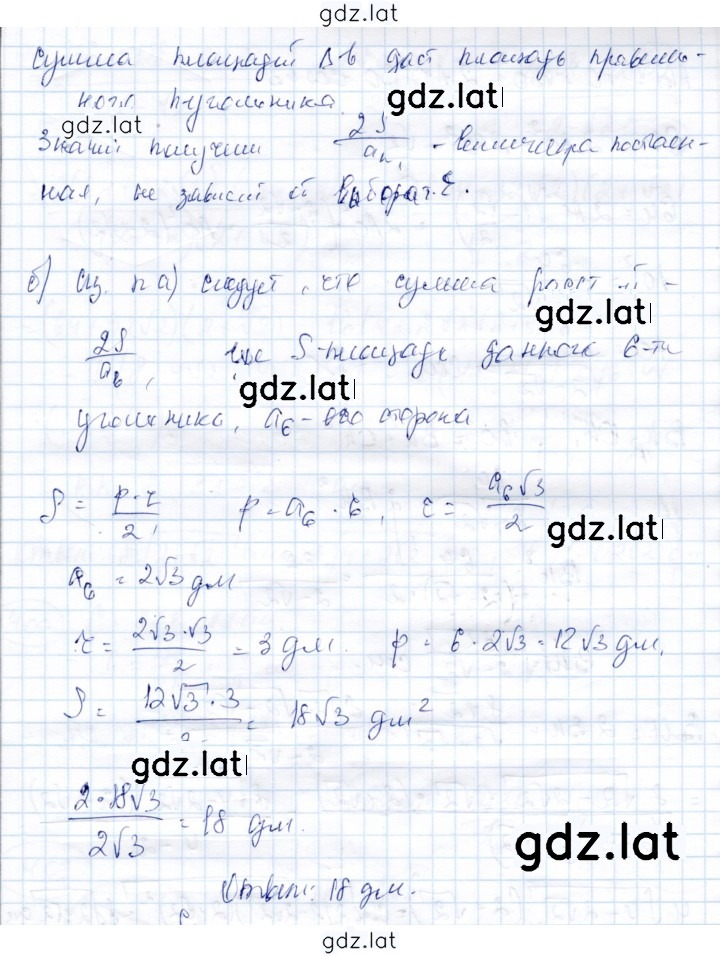 gdz.lat
сумма площадей Δ-в даст площадь правиль-
ного n-угольника.
gdz.lat
gdz.lat
Значит получим 2S/aₙ, - величина постоян-
ная, не зависит от выбора т.
б) Из п а) следует, что сумма раст -
gdz.lat
2S/a₆, где S-площадь данного 6-ти
gdz.lat
угольника, a₆ - его сторона
S = p·r/2, p = a₆ · 6, r = a₆√3/2
gdz.lat
a₆ = 2√3 дм
r = 2√3·√3/2 = 3 дм. p = 6·2√3 = 12√3 дм.
S = 12√3·3/2 = 18√3 дм²
gdz.lat
2·18√3/2√3 = 18 дм.
gdz.lat
Ответ: 18 дм.
gdz.lat